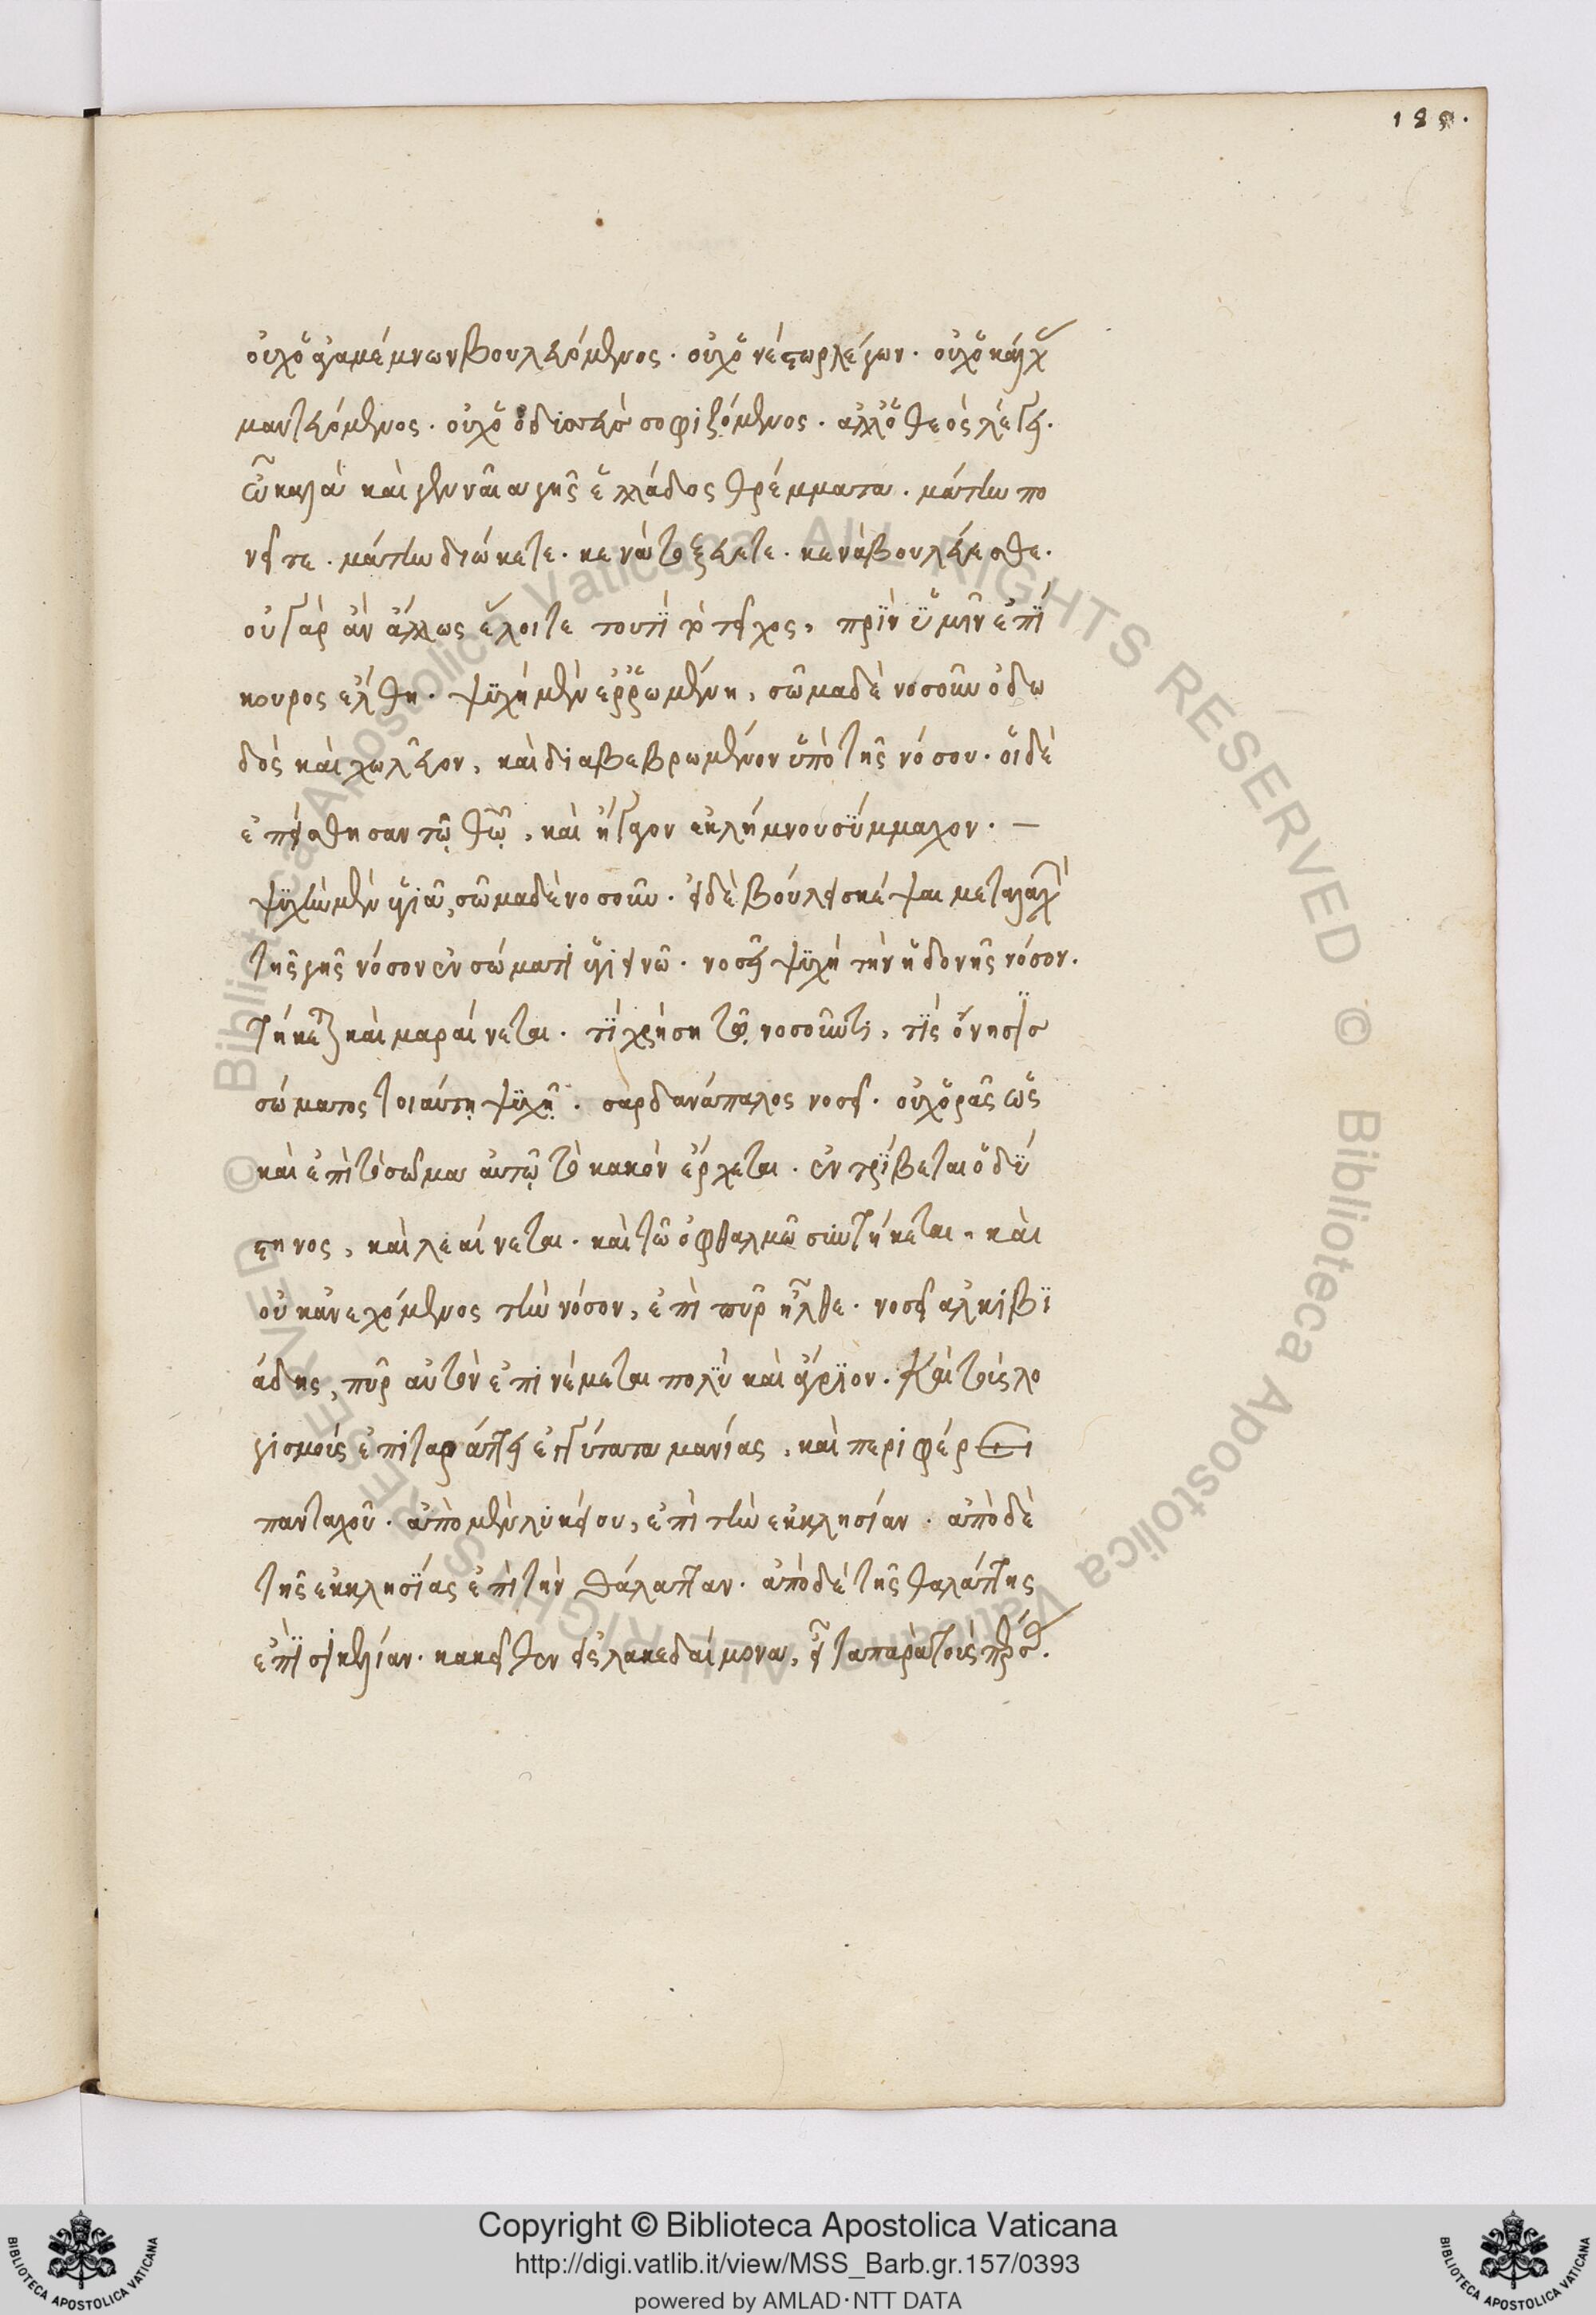 189.
οὐχ ὁ ἀγαμέμνων βουλευόμενος. οὐχ ὁ νέστωρ λέγων. οὐχ ὁ κάλχας
μαντευόμενος. οὐχ ὁ ὀδυσσεὺς σοφιζόμενος. ἀλλ' ὁ θεὸς λέγει.
ὦ καλὰ καὶ γενναῖα γῆς ἑλλάδος θρέμματα. μάτην πο
νεῖτε. μάτην διώκετε. κενὰ τοξεύετε. κενὰ βουλεύεσθε.
οὐ γὰρ ἂν ἄλλως ἕλοιτε τουτὶ τὸ τεῖχος, πρὶν ὑμῖν ἐπί
κουρος ἔλθη. ψυχὴ μὲν ἐρρωμένη, σῶμα δὲ νοσοῦν ὀδω
δὸς καὶ χωλεῦον, καὶ διαβεβρωμένον ὑπὸ τῆς νόσου. οἱ δὲ
ἐπείσθησαν τῷ θεῷ, καὶ ἤγαγον ἐκ λήμνου σύμμαχον. —
ψυχὴν μὲν ὑγιᾶ, σῶμα δὲ νοσοῦν. εἰ δὲ βούλει σκέψαι μεταλαβὼν
τῆς γῆς νόσον ἐν σώματι ὑγιεινῶ. νοσεῖ ψυχὴ τὴν ἡδονῆς νόσον.
τήκεται καὶ μαραίνεται. τί χρήση τῷ νοσοῦντι, τίς ὄνησις
σώματος τοιαύτῃ ψυχῇ. σαρδανάπαλος νοσεῖ. οὐχ ὁρᾶς ὡς
καὶ ἐπὶ τὸ σῶμα αὐτῷ τὸ κακὸν ἔρχεται. ἐντρίβεται ὁ δύ
στηνος, καὶ λεαίνεται. καὶ τῶ ὀφθαλμῶ συντήκεται. καὶ
οὐκ ἀνεχόμενος τὴν νόσον, ἐπὶ πῦρ ἦλθε. νοσεῖ ἀλκιβι
άδης, πῦρ αὐτὸν ἐπινέμεται πολὺ καὶ ἄγριον. καὶ τοὺς λο
γισμοὺς ἐπιταράττει ἐγγύτατα μανίας, καὶ περιφέρει
πανταχοῦ. ἀπὸ μὲν λυκείου, ἐπὶ τὴν ἐκκλησίαν. ἀπὸ δὲ
τῆς ἐκκλησίας ἐπὶ τὴν θάλατταν. ἀπὸ δὲ τῆς θαλάττης
ἐπὶ σικελίαν. κἀκεῖθεν εἰς λακεδαίμονα, εἶτα παρὰ τοὺς πέρσας.
Copyright © Biblioteca Apostolica Vaticana
http://digi.vatlib.it/view/MSS_Barb.gr.157/0393
powered by AMLAD·NTT DATA
BIBLIOTECA APOSTOLICA VATICANA
BIBLIOTECA APOSTOLICA VATICANA
© Biblioteca Apostolica Vaticana ALL RIGHTS RESERVED © Biblioteca Apostolica Vaticana ALL RIGHTS RESERVED